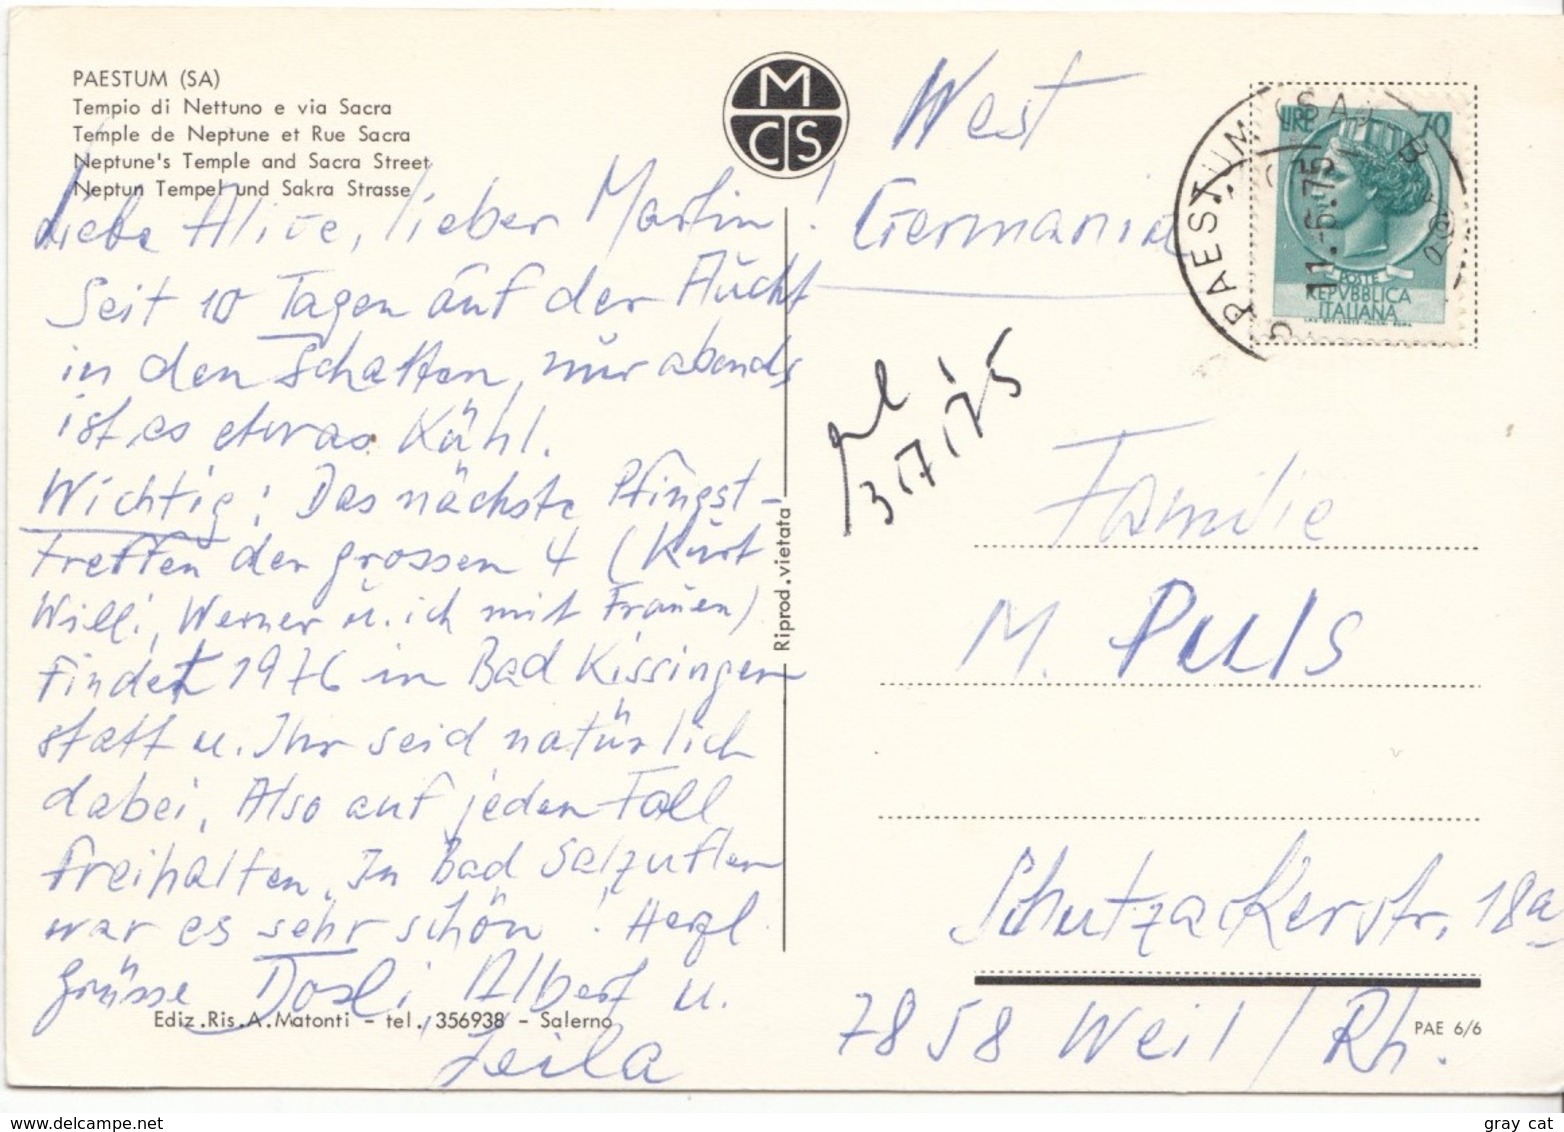 PAESTUM (SA)
Tempio di Nettuno e via Sacra
Temple de Neptune et Rue Sacra
Neptune's Temple and Sacra Street
Neptun Tempel und Sakra Strasse
Liebe Alice, lieber Martin!
Seit 10 Tagen auf der Flucht
in den Schatten, nur abends
ist es etwas Kühl.
Wichtig: Das nächste Pfingst-
treffen der grossen 4 (Kurt
Willi, Werner u. ich mit Frauen)
findet 1976 in Bad Kissingen
statt u. Ihr seid natürlich
dabei. Also auf jeden Fall
freihalten. In Bad Salzuflen
war es sehr schön! Herzl.
Grüsse Dosli, Albert u.
Leila
Ediz.Ris.A.Matonti - tel. 356938 - Salerno
M
CS
Riprod. vietata
West
Germania
3.7.75
PAESTUM (SA)
11.-6.75
LIRE 70
POSTE
REPVBBLICA
ITALIANA
Familie
M. Puls
Schutzackerstr. 18a
7858 Weil/Rh.
PAE 6/6
gray cat